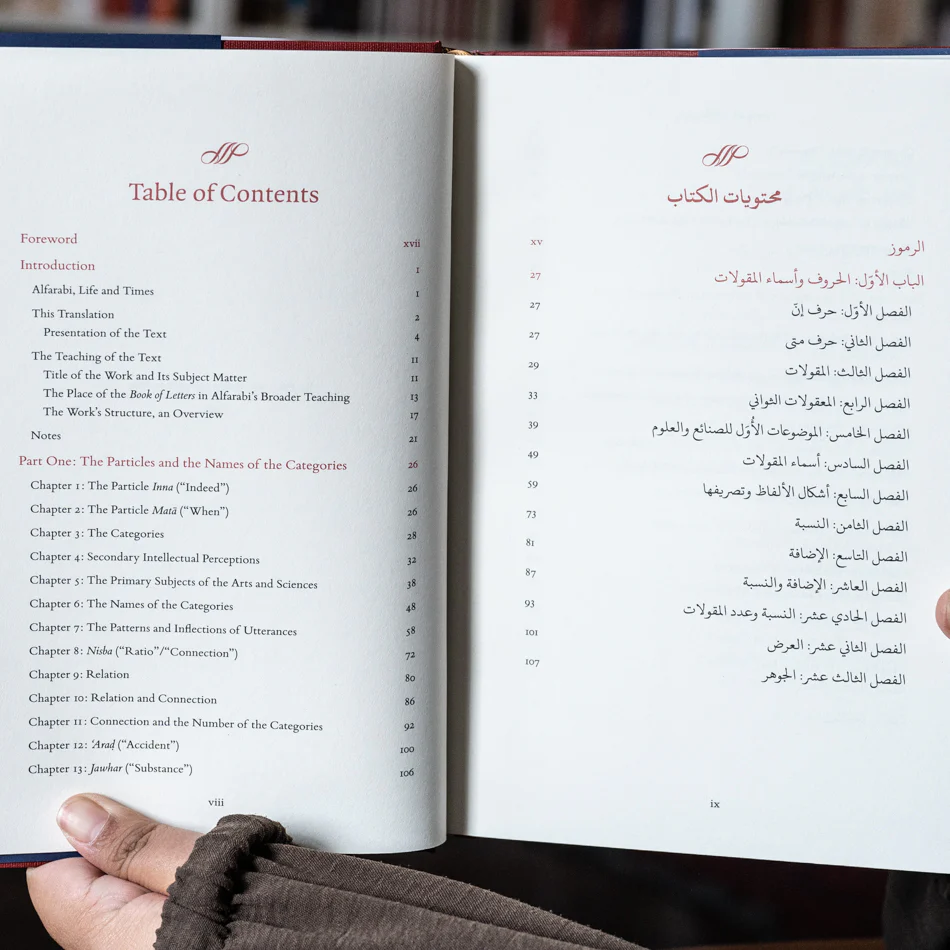 Table of Contents
Foreword xvii
Introduction 1
Alfarabi, Life and Times 1
This Translation 2
Presentation of the Text 4
The Teaching of the Text 11
Title of the Work and Its Subject Matter 11
The Place of the Book of Letters in Alfarabi's Broader Teaching 13
The Work's Structure, an Overview 17
Notes 21
Part One: The Particles and the Names of the Categories 26
Chapter 1: The Particle Inna (“Indeed”) 26
Chapter 2: The Particle Matā (“When”) 26
Chapter 3: The Categories 28
Chapter 4: Secondary Intellectual Perceptions 32
Chapter 5: The Primary Subjects of the Arts and Sciences 38
Chapter 6: The Names of the Categories 48
Chapter 7: The Patterns and Inflections of Utterances 58
Chapter 8: Nisba (“Ratio”/“Connection”) 72
Chapter 9: Relation 80
Chapter 10: Relation and Connection 86
Chapter 11: Connection and the Number of the Categories 92
Chapter 12: ʿAraḍ (“Accident”) 100
Chapter 13: Jawhar (“Substance”) 106
viii
محتويات الكتاب
الرموز xv
الباب الأوّل: الحروف وأسماء المقولات 27
الفصل الأوّل: حرف إنّ 27
الفصل الثاني: حرف متى 27
الفصل الثالث: المقولات 29
الفصل الرابع: المعقولات الثواني 33
الفصل الخامس: الموضوعات الأُوَل للصنائع والعلوم 39
الفصل السادس: أسماء المقولات 49
الفصل السابع: أشكال الألفاظ وتصريفها 59
الفصل الثامن: النسبة 73
الفصل التاسع: الإضافة 81
الفصل العاشر: الإضافة والنسبة 87
الفصل الحادي عشر: النسبة وعدد المقولات 93
الفصل الثاني عشر: العرض 101
الفصل الثالث عشر: الجوهر 107
ix